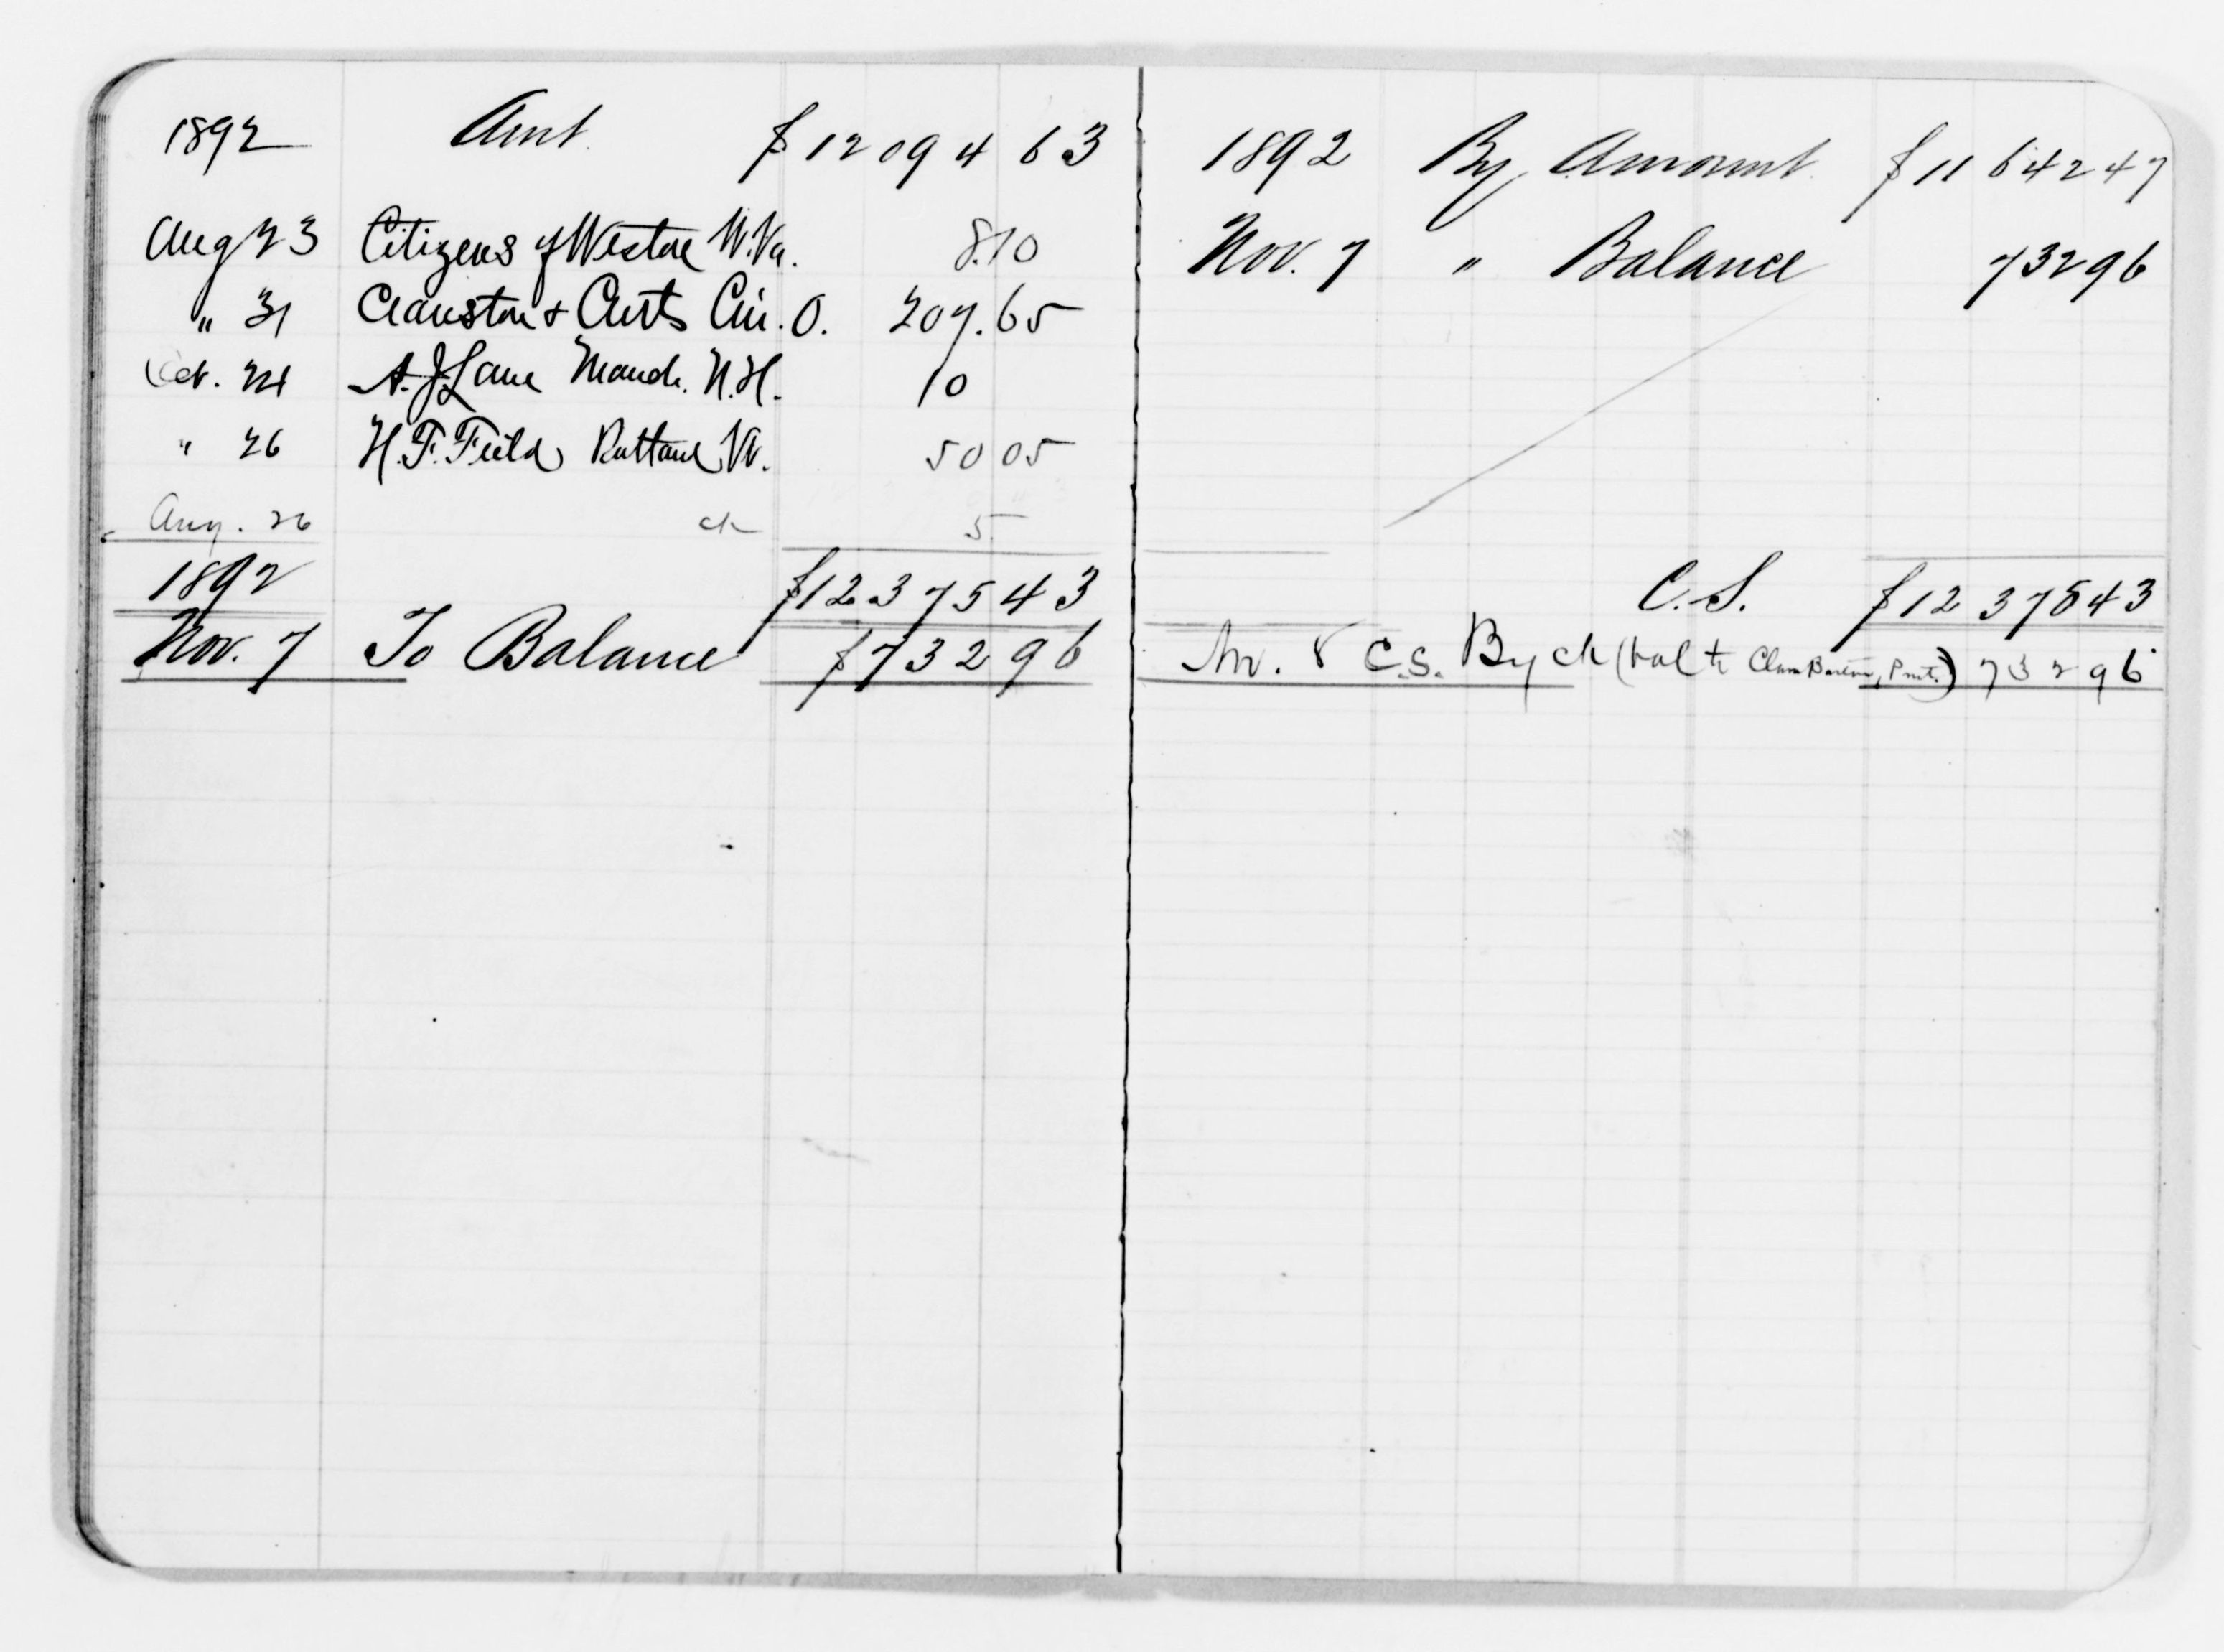 1892 Amt. $12094 63
Aug 23 Citizens of Weston W.Va. 8.10
" 31 & Cin. O. 207.65
Oct. 24 A. J. Lane Manch. N.H. 10
" 26 H. F. Field Rutland Vt. 50 05
Aug. 26 ch 5
1892 $12375 43
Nov. 7 To Balance $732 96
1892 By Amount $11642 47
Nov. 7 " Balance 732 96
C. S. $12375 43
Nov. 8 C.S. By ch (bal to Clara Barton, Prest.) 732 96